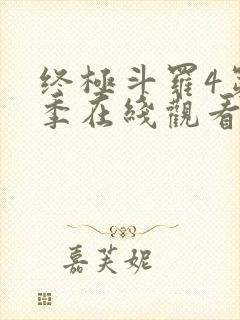 终極斗罗4
季在綫觀看
嘉芙妮